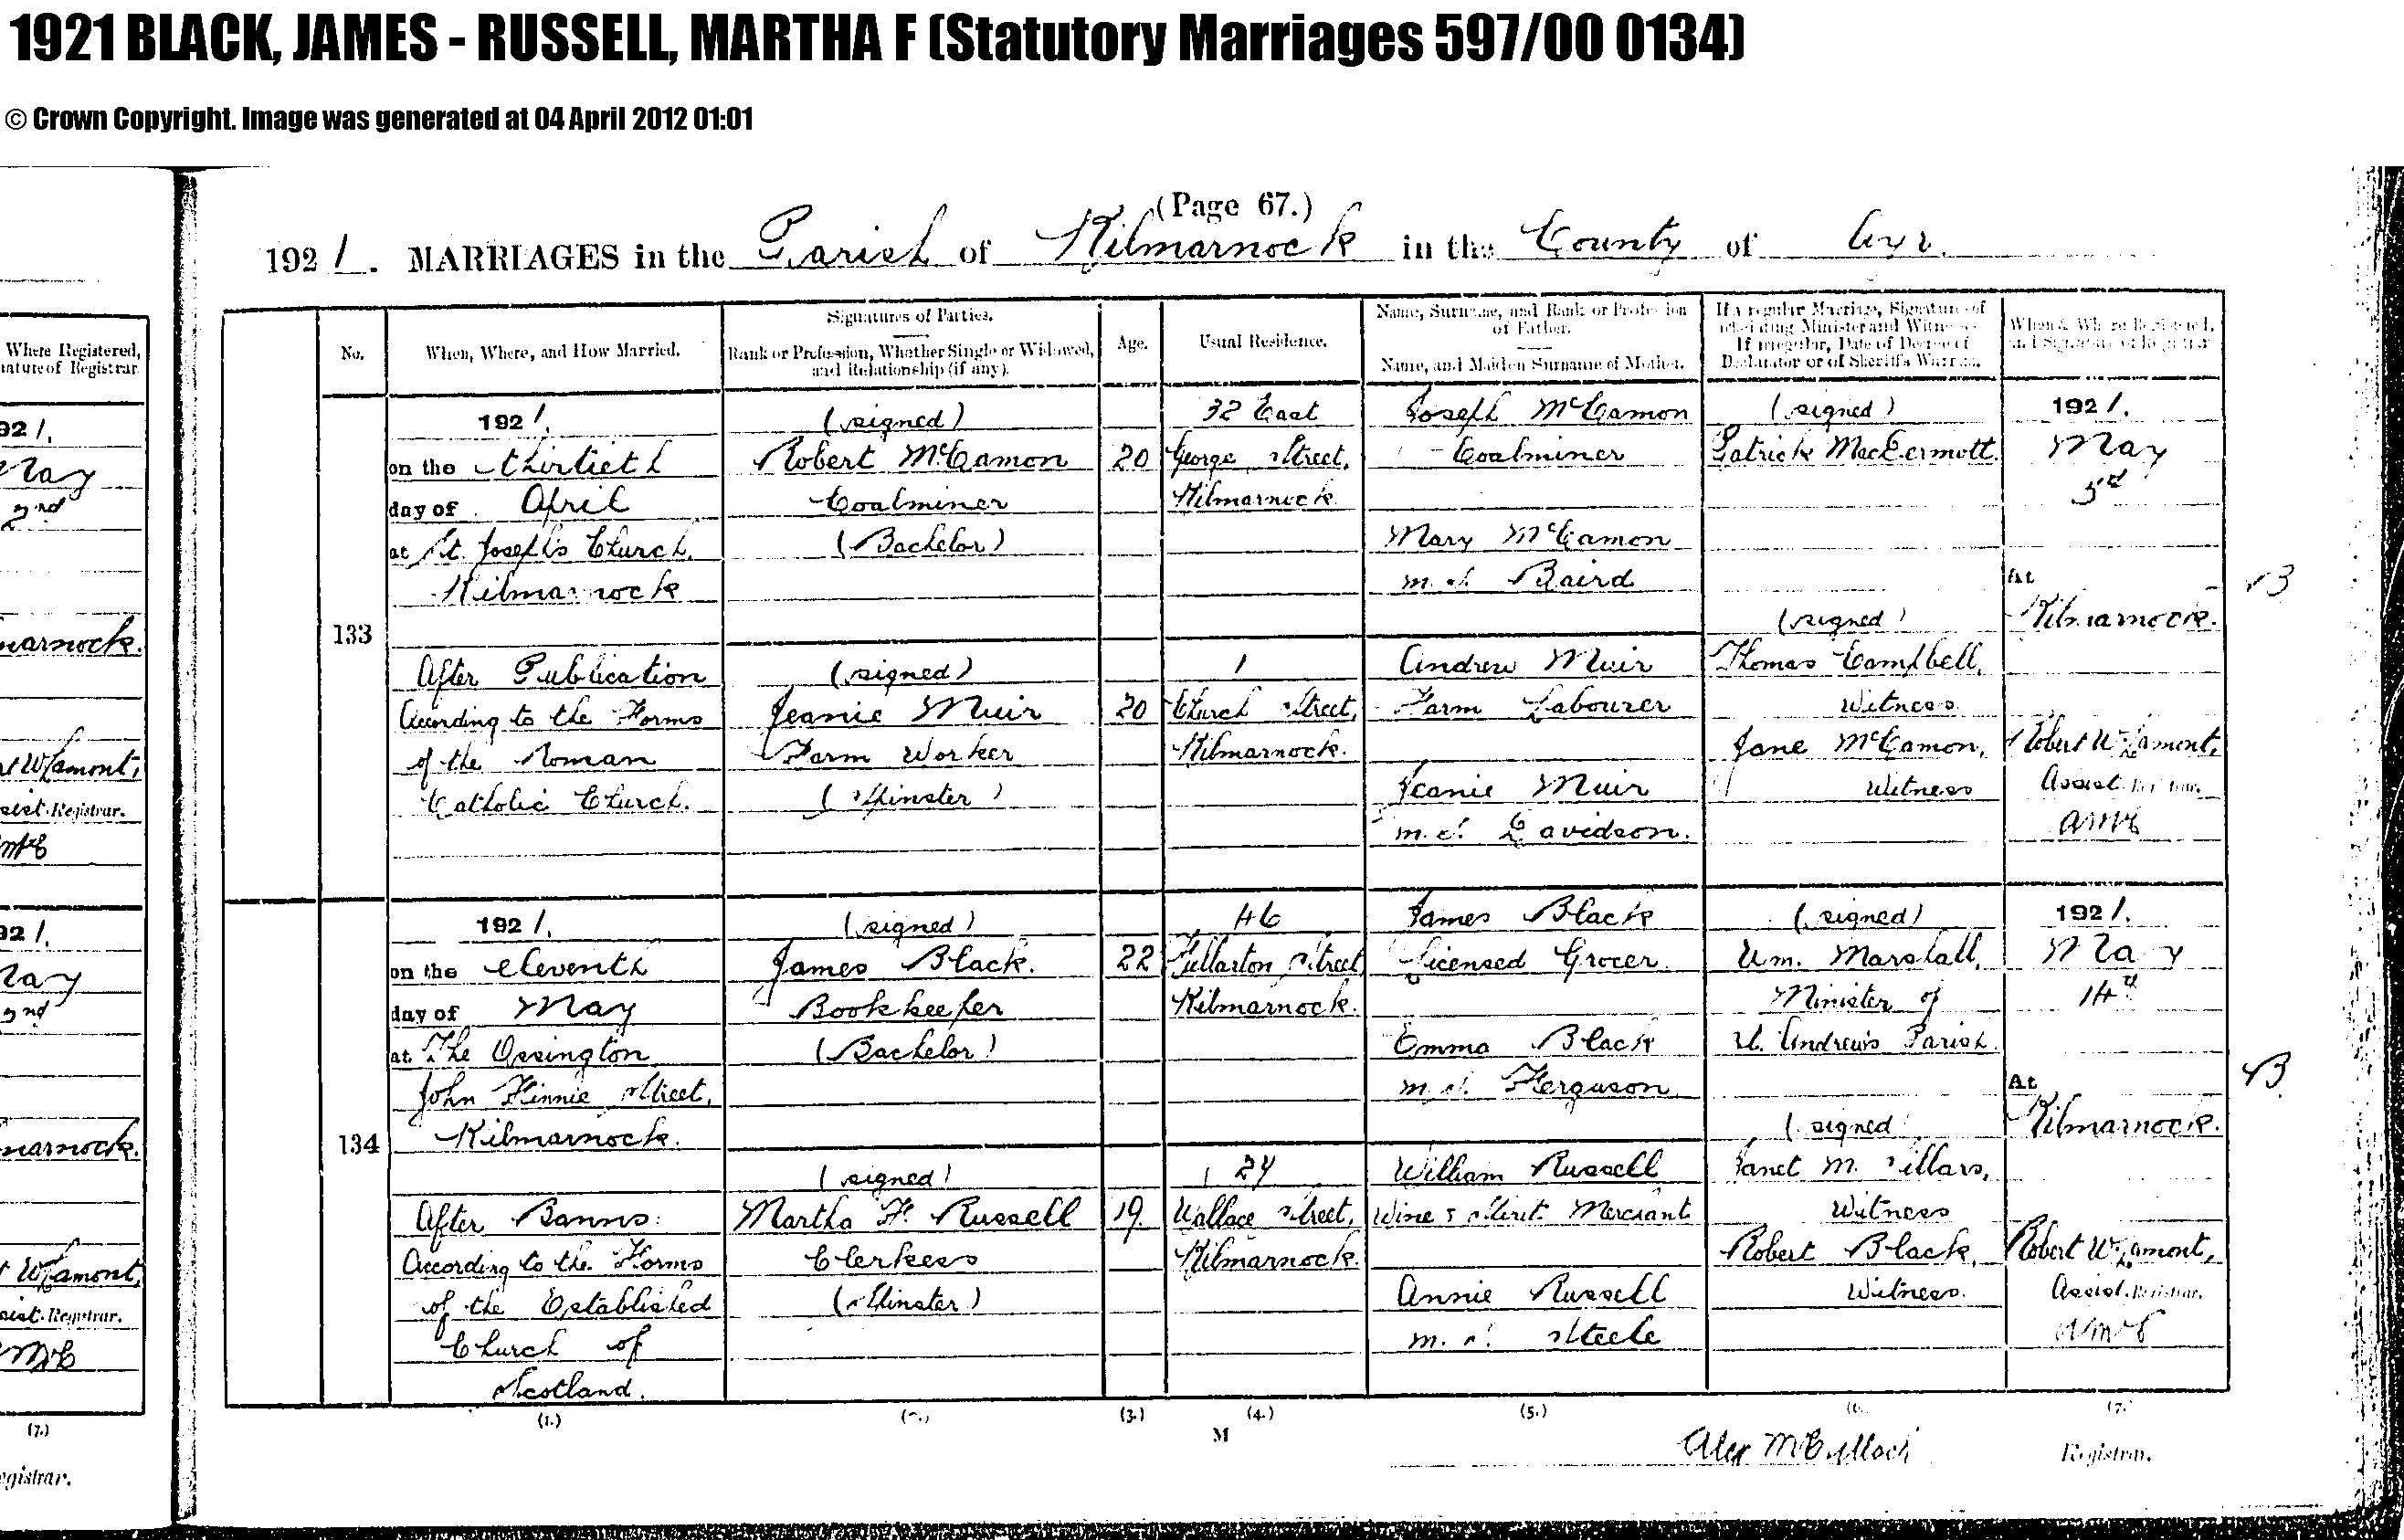 1921 BLACK, JAMES - RUSSELL, MARTHA F (Statutory Marriages 597/00 0134)
© Crown Copyright. Image was generated at 04 April 2012 01:01
(Page 67.)
1921. MARRIAGES in the Parish of Kilmarnock in the County of Ayr.
Where Registered,
nature of Registrar.
92 1.
May
2nd
marnock.
W Lamont,
Assist. Registrar.
92 1.
May
2nd
marnock.
W Lamont,
Assist. Registrar.
(7.)
egistrar.
No.
When, Where, and How Married.
Signatures of Parties.
Rank or Profession, Whether Single or Widowed,
and Relationship (if any).
Age.
Usual Residence.
Name, Surname, and Rank or Profession
of Father.
Name, and Maiden Surname of Mother.
If a regular Marriage, Signatures of
officiating Minister and Witnesses.
If irregular, Date of Decree of
Declarator or of Sheriff's Warrant.
When & Where Registered,
and Signature of Registrar.
133
1921.
on the thirtieth
day of April
at St. Joseph's Church,
Kilmarnock
After Publication
According to the Forms
of the Roman
Catholic Church.
(signed)
Robert McCamon
Coalminer
(Bachelor)
(signed)
Jeanie Muir
Farm Worker
(Spinster)
20
20
32 East
George Street,
Kilmarnock
1
Church Street,
Kilmarnock.
Joseph McCamon
Coalminer
Mary McCamon
m.s. Baird
Andrew Muir
Farm Labourer
Jeanie Muir
m.s. Davidson.
(signed)
Patrick MacDermott.
(signed)
Thomas Campbell,
Witness
Jane McCamon,
Witness
1921.
May
3d
At
Kilmarnock.
Robert W. Lamont,
Assist. Registrar.
134
1921.
on the eleventh
day of May
at The Ossington
John Finnie Street,
Kilmarnock.
After Banns
According to the Forms
of the Established
Church of
Scotland.
(signed)
James Black.
Bookkeeper
(Bachelor)
(signed)
Martha F. Russell
Clerkess
(Spinster)
22
19.
46
Fullarton Street
Kilmarnock.
24
Wallace Street,
Kilmarnock.
James Black
Licensed Grocer.
Emma Black
m.s. Ferguson
William Russell
Wine & Spirit Merchant
Annie Russell
m.s. Steele
(signed)
Wm. Marshall,
Minister of
St. Andrew's Parish.
(signed)
Janet M. Sillars,
Witness
Robert Black,
Witness.
1921.
May
14th
At
Kilmarnock.
Robert W. Lamont,
Assist. Registrar.
(1.)
(2.)
(3.)
(4.)
(5.)
(6.)
(7.)
M
Alex McCulloch
Registrar.